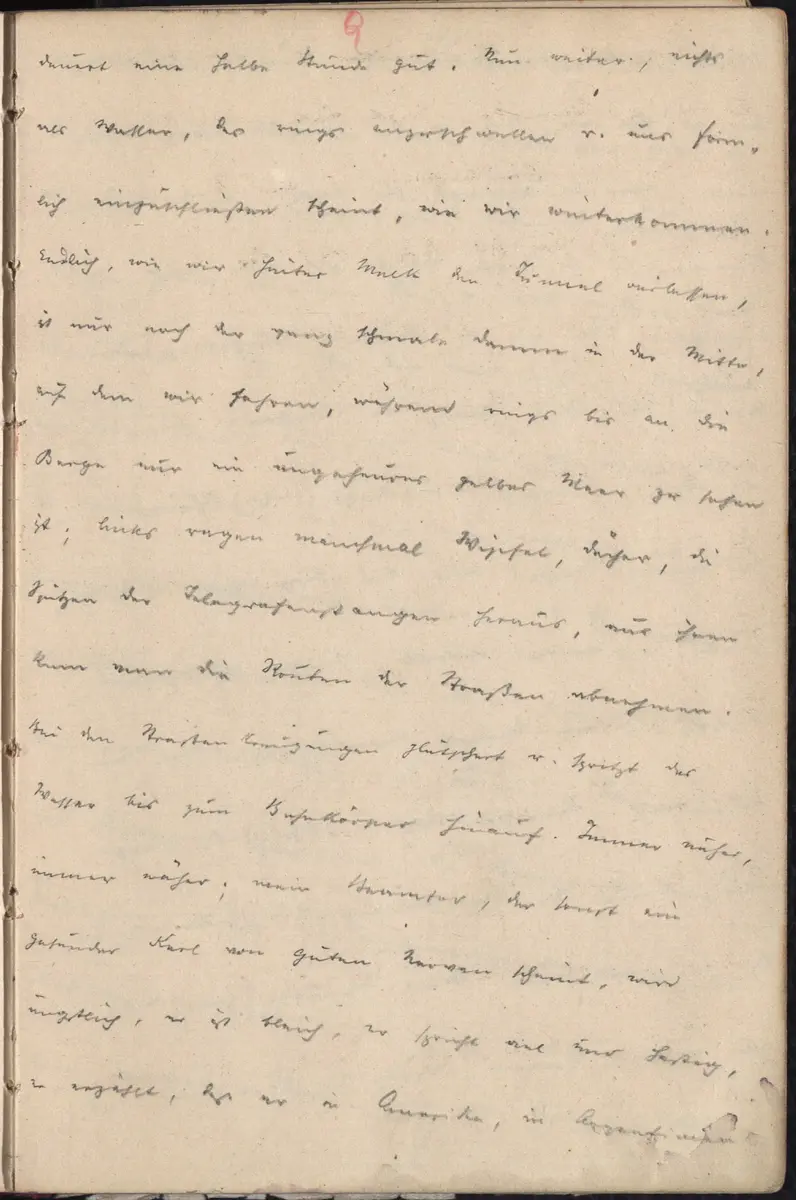 9
dauert eine halbe Stunde gut. Nun weiter, nichts
als Wasser, das rings anzuschwellen u. uns förm-
lich einzuschließen scheint, wie wir weiterkommen.
Endlich, wie wir hinter Melk den Tunnel verlassen,
ist nur noch der ganz schmale Damm in der Mitte,
auf dem wir fahren, während rings bis an die
Berge nur ein ungeheures gelbes Meer zu sehen
ist; links ragen manchmal Wipfel, Dächer, die
Spitzen der Telegrafenstangen heraus, aus ihnen
kann man die Routen der Straßen abnehmen.
Bei den Straßenkreuzungen plutschert u. spritzt das
Wasser bis zum Bahnkörper hinauf. Immer näher,
immer näher; mein Beamter, der sonst ein
gesunder Kerl von guten Nerven scheint, wird
ängstlich, er ist bleich, er spricht viel und hastig,
er erzählt, daß er in Amerika, in Argentinien